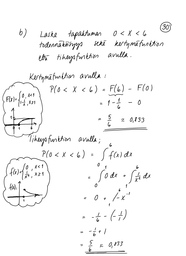 30
b) Laske tapahtuman 0 < X < 6
todennäköisyys sekä kertymäfunktion
että tiheysfunktion avulla.
Kertymäfunktion avulla:
P(0 < X < 6) = F(6) - F(0)
F(x) = { 0, x<1
1-1/x, x≥1
= 1 - 1/6 - 0
= 5/6 ≈ 0,833
Tiheysfunktion avulla:
P(0 < X < 6) = ∫ f(x) dx
f(x) = { 0, x<1
1/x², x≥1
= ∫ 0 dx + ∫ 1/x² dx
= 0 + / -x⁻¹
= -1/6 - (-1/1)
= -1/6 + 1
= 5/6 ≈ 0,833